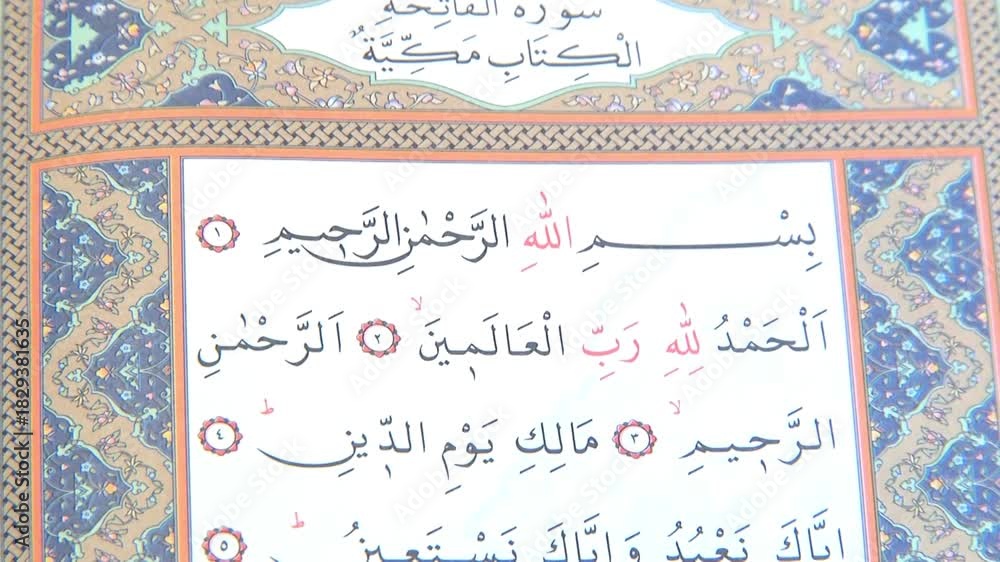 سورة الفاتحة
الْكِتَابِ مَكِّيَّةٌ
بِسْمِ اللّٰهِ الرَّحْمٰنِ الرَّحِيمِ ١
اَلْحَمْدُ لِلّٰهِ رَبِّ الْعَالَمِينَۙ ٢ اَلرَّحْمٰنِ
الرَّحِيمِۙ ٣ مَالِكِ يَوْمِ الدِّينِۜ ٤
اِيَّاكَ نَعْبُدُ وَاِيَّاكَ نَسْتَعِينُۜ ٥
Adobe Stock | #1829381635